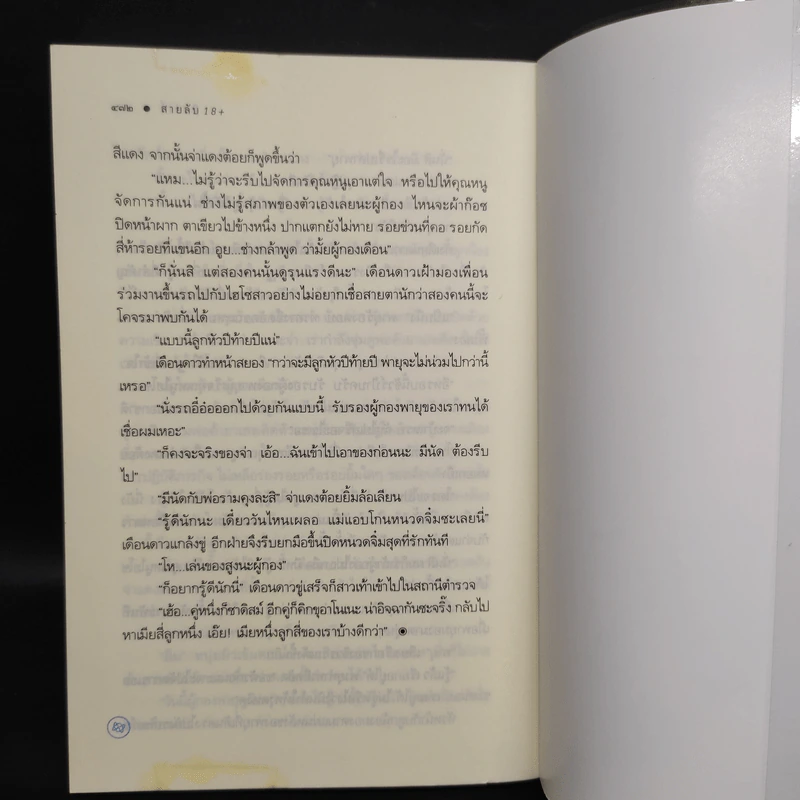 ๔๗๒ ● สายลับ 18+
สีแดง จากนั้นจ่าแดงต้อยก็พูดขึ้นว่า
“แหม...ไม่รู้ว่าจะรีบไปจัดการคุณหนูเอาแต่ใจ หรือไปให้คุณหนู
จัดการกันแน่ ช่างไม่รู้สภาพของตัวเองเลยนะผู้กอง ไหนจะผ้าก๊อซ
ปิดหน้าผาก ตาเขียวไปข้างหนึ่ง ปากแตกยังไม่หาย รอยข่วนที่คอ รอยกัด
สี่ห้ารอยที่แขนอีก อูย...ช่างกล้าพูด ว่ามั้ยผู้กองเดือน”
“ก็นั่นสิ แต่สองคนนั้นดูรุนแรงดีนะ” เดือนดาวเฝ้ามองเพื่อน
ร่วมงานขึ้นรถไปกับไฮโซสาวอย่างไม่อยากเชื่อสายตานักว่าสองคนนี้จะ
โคจรมาพบกันได้
“แบบนี้ลูกหัวปีท้ายปีแน่”
เดือนดาวทำหน้าสยอง “กว่าจะมีลูกหัวปีท้ายปี พายุจะไม่น่วมไปกว่านี้
เหรอ”
“นั่งรถอี๋อ๋อออกไปด้วยกันแบบนี้ รับรองผู้กองพายุของเราทนได้
เชื่อผมเหอะ”
“ก็คงจะจริงของจ่า เอ้อ...ฉันเข้าไปเอาของก่อนนะ มีนัด ต้องรีบ
ไป”
“มีนัดกับพ่อรามคุงละสิ” จ่าแดงต้อยยิ้มล้อเลียน
“รู้ดีนักนะ เดี๋ยววันไหนเผลอ แม่แอบโกนหนวดจิ๋มซะเลยนี่”
เดือนดาวแกล้งขู่ อีกฝ่ายจึงรีบยกมือขึ้นปิดหนวดจิ๋มสุดที่รักทันที
“โห...เล่นของสูงนะผู้กอง”
“ก็อยากรู้ดีนักนี่” เดือนดาวขู่เสร็จก็สาวเท้าเข้าไปในสถานีตำรวจ
“เฮ้อ...คู่หนึ่งก็ซาดิสม์ อีกคู่ก็คิกขุอาโนเนะ น่าอิจฉากันซะจริ๊ง กลับไป
หาเมียสี่ลูกหนึ่ง เอ๊ย! เมียหนึ่งลูกสี่ของเราบ้างดีกว่า” ◉